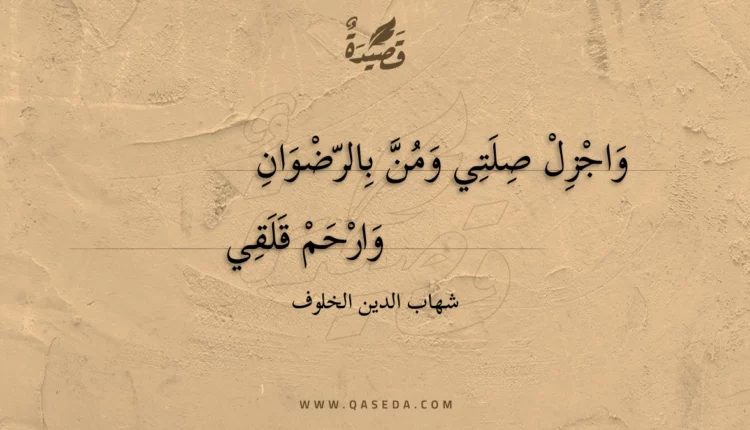 قَصِيْدَةٌ
وَاجْزِلْ صِلَتِي وَمُنَّ بِالرّضْوَانِ
وَارْحَمْ قَلَقِي
شهاب الدين الخلوف
WWW.QASEDA.COM